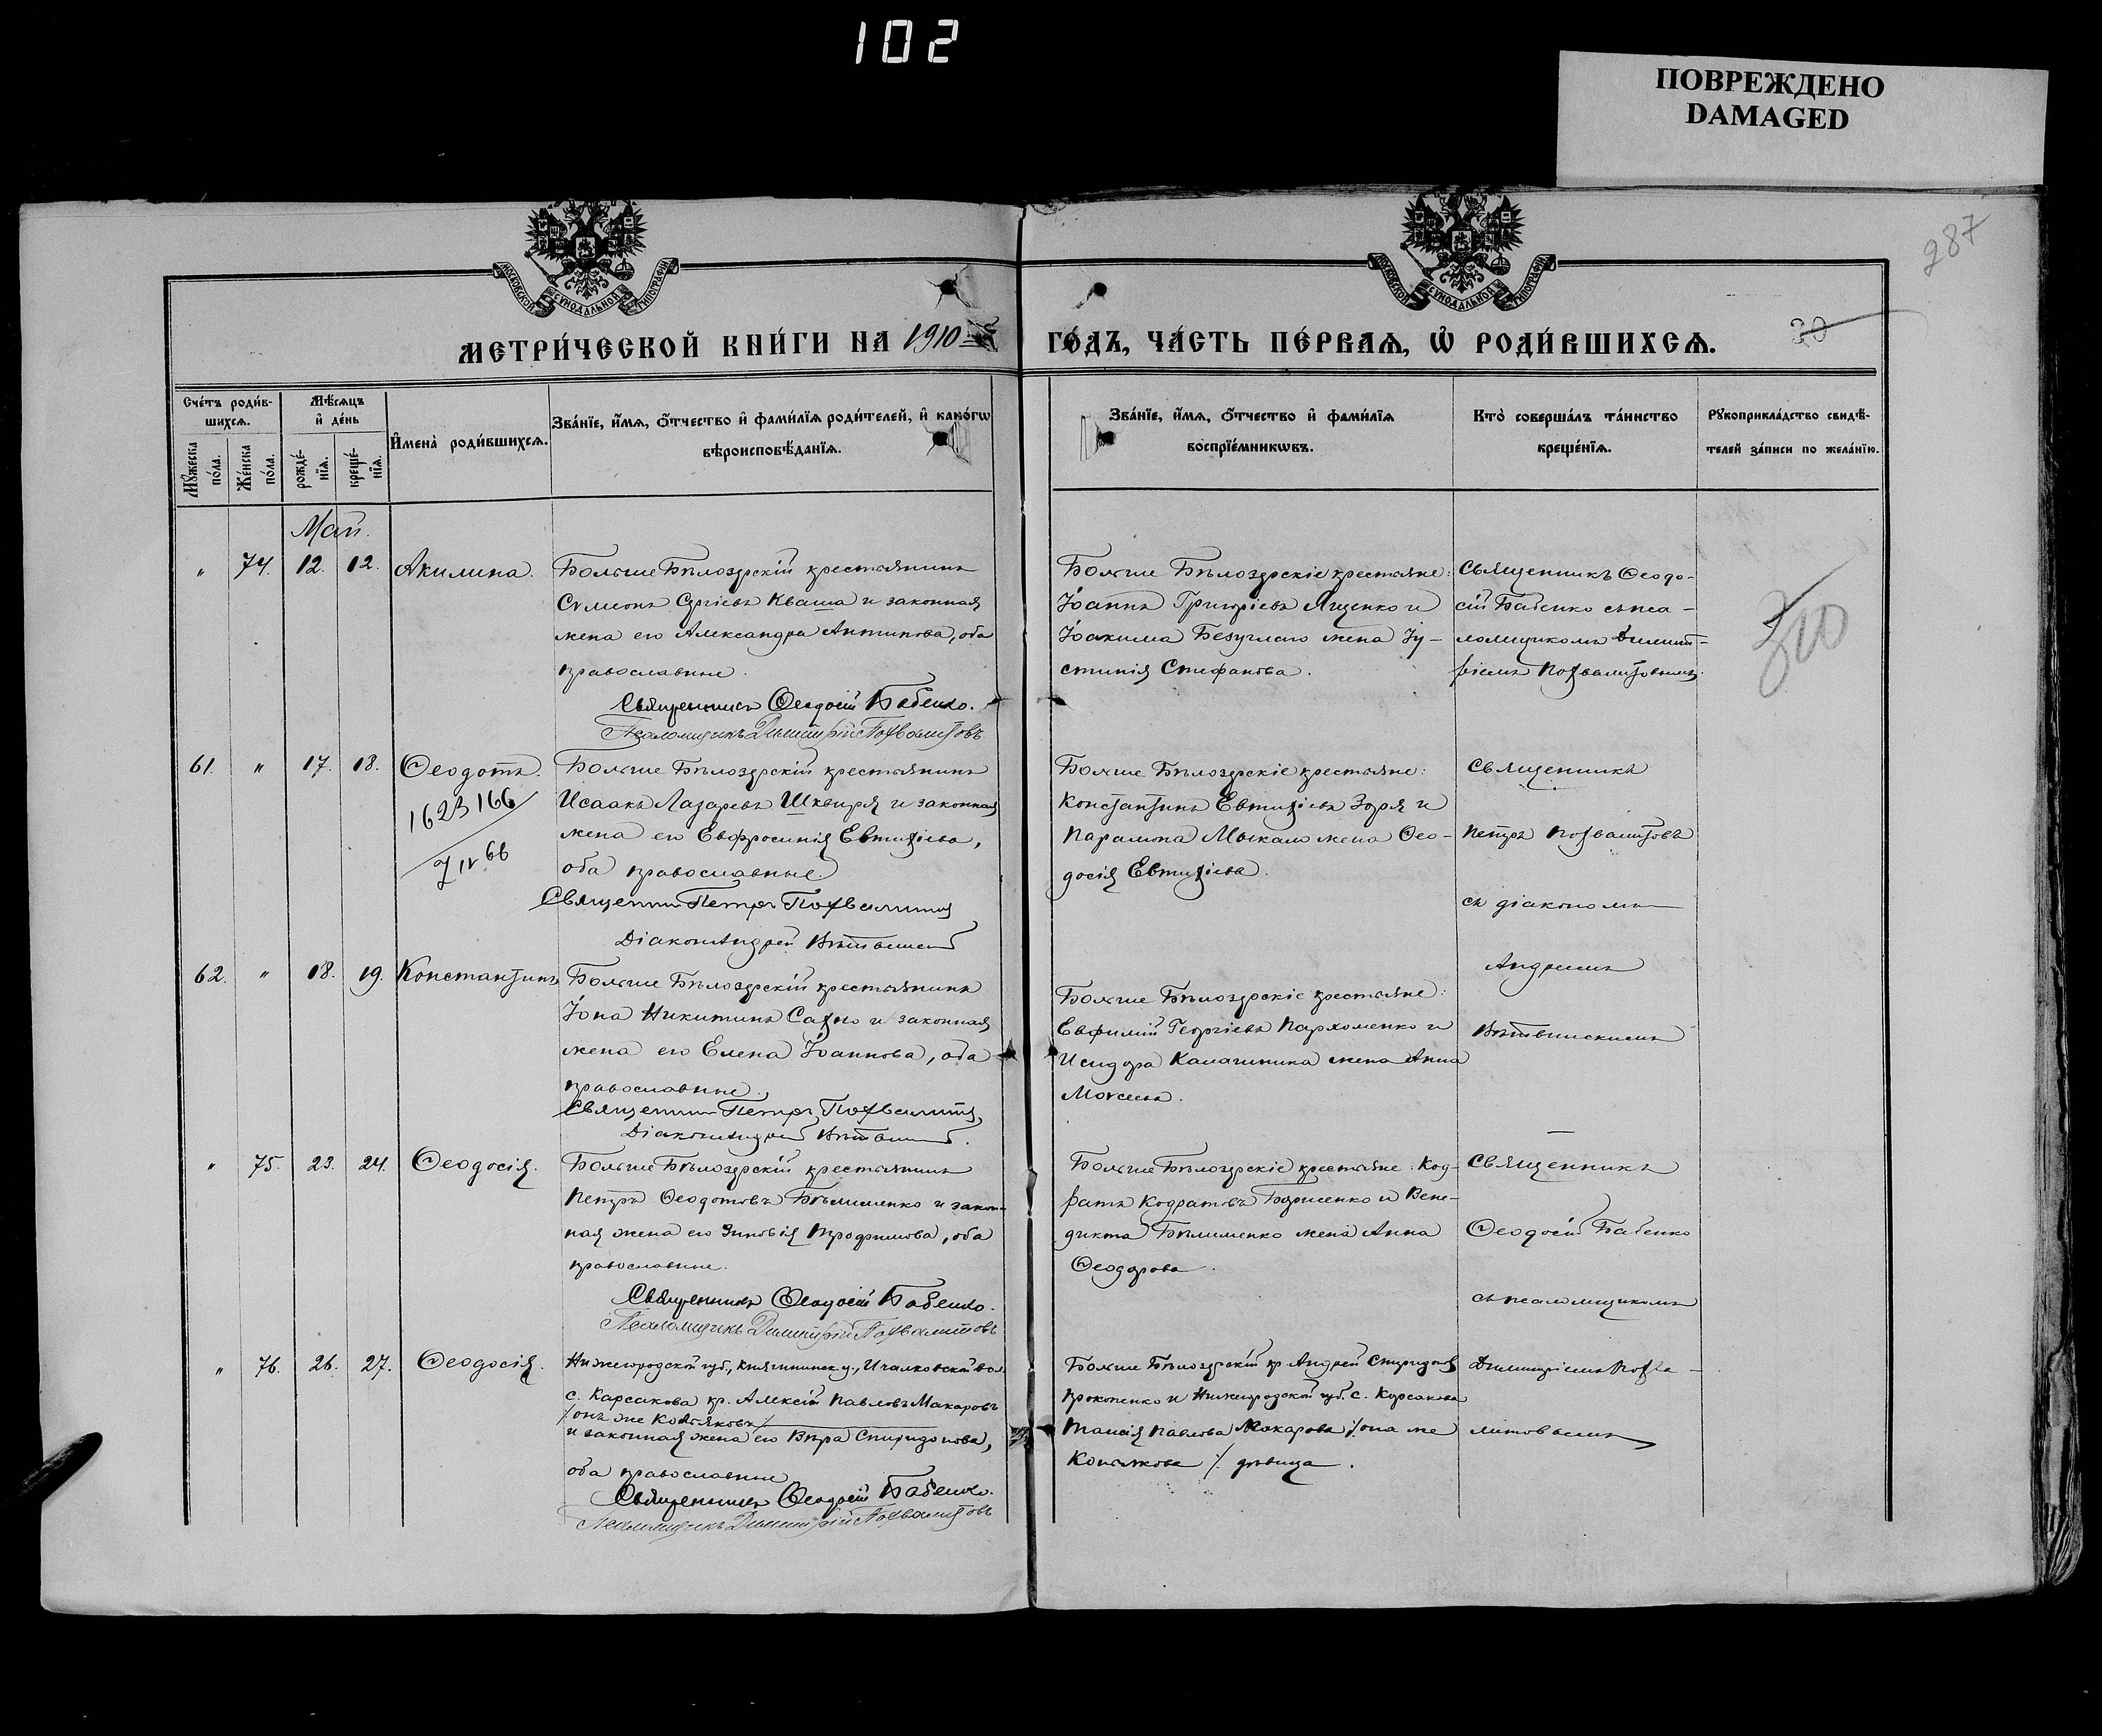 102
ПОВРЕЖДЕНО
DAMAGED
287
МОСКОВСКОЙ СѴНОДАЛЬНОЙ ТИПОГРАФІИ
МОСКОВСКОЙ СѴНОДАЛЬНОЙ ТИПОГРАФІИ
МЕТРИ́ЧЕСКОЙ КНИ́ГИ НА 1910
ГО́ДЪ, ЧА́СТЬ ПЕ́РВАѦ, Ѡ҆ РОДИ́ВШИХСѦ.
30
Сче́тъ роди́в-
шихсѧ.
Мꙋ́жеска по́ла.
Же́нска по́ла.
Мѣ́сѧцъ
и҆ де́нь
рожде́-
нїѧ.
креще́-
нїѧ.
И҆мена̀ роди́вшихсѧ.
Зва́нїе, и҆́мѧ, ѻ҆́тчество и҆ фами́лїѧ роди́телей, и҆ како́гѡ
вѣроисповѣ́данїѧ.
Зва́нїе, и҆́мѧ, ѻ҆́тчество и҆ фами́лїѧ
воспрїе́мникѡвъ.
Кто̀ соверша́лъ та́инство
креще́нїѧ.
Рꙋкоприкла́дство свидѣ́-
телей за́писи по жела́нїю.
Май.
" 74. 12. 12. Акилина.
Больше Бѣлозерскій крестьянинъ
Сѵмеонъ Сергіевъ Кваша и законная
жена его Александра Антипова, оба
православные.
Священникъ Ѳеодосій Бабенко.
Псаломщикъ Димитрій Похвалитовъ
Больше Бѣлозерскіе крестьяне:
Іоаннъ Григоріевъ Яценко и
Іоакима Безуглаго жена Іу-
стинія Стефанова.
Священникъ Ѳеодо-
сій Бабенко съ пса-
ломщикомъ Димит-
ріемъ Похвалитовымъ.
310
61. " 17. 18. Ѳеодотъ.
1623166
7 IV 66
Больше Бѣлозерскій крестьянинъ
Исаакъ Лазаревъ Шквиря и законная
жена его Евфросинія Евтихіева,
оба православные.
Священникъ Петръ Похвалитовъ
Діаконъ Андрей
Больше Бѣлозерскіе крестьяне:
Константинъ Евтихіевъ Зоря и
Парамона Москало жена Ѳео-
досія Евтихіева.
Священникъ
Петръ Похвалитовъ
съ діакономъ
Андреемъ
62. " 18. 19. Константинъ
Больше Бѣлозерскій крестьянинъ
Іона Никитинъ Сахно и законная
жена его Елена Іоаннова, оба
православные.
Священникъ Петръ Похвалитовъ
Діаконъ Андрей
Больше Бѣлозерскіе крестьяне:
Евфимій Георгіевъ Пархоменко и
Исидора Калашника жена Анна
Моѵсеева.
" 75. 23. 24. Ѳеодосія.
Больше Бѣлозерскій крестьянинъ
Петръ Ѳеодотовъ Бѣлименко и закон-
ная жена его Зиновія Трофимова, оба
православные.
Священникъ Ѳеодосій Бабенко.
Псаломщикъ Димитрій Похвалитовъ
Больше Бѣлозерскіе крестьяне: Код-
ратъ Кодратовъ Борисенко и Вене-
дикта Бѣлименко жена Анна
Ѳеодорова.
Священникъ
Ѳеодосій Бабенко
съ псаломщикомъ
" 76. 26. 27. Ѳеодосія.
Нижегородской губ., Княгининск. у., Ичалковской вол.
с. Карсакова кр. Алексій Павловъ Макаровъ
/онъ же /
и законная жена его Вѣра Спиридонова,
оба православные
Священникъ Ѳеодосій Бабенко.
Псаломщикъ Димитрій Похвалитовъ
Больше Бѣлозерскій кр. Андрей Спиридоновъ
Прокопенко и Нижегородской губ. с. Корсакова
Таисія Павлова Макарова /она же
/ дѣвица.
Димитріемъ Похва-
литовымъ